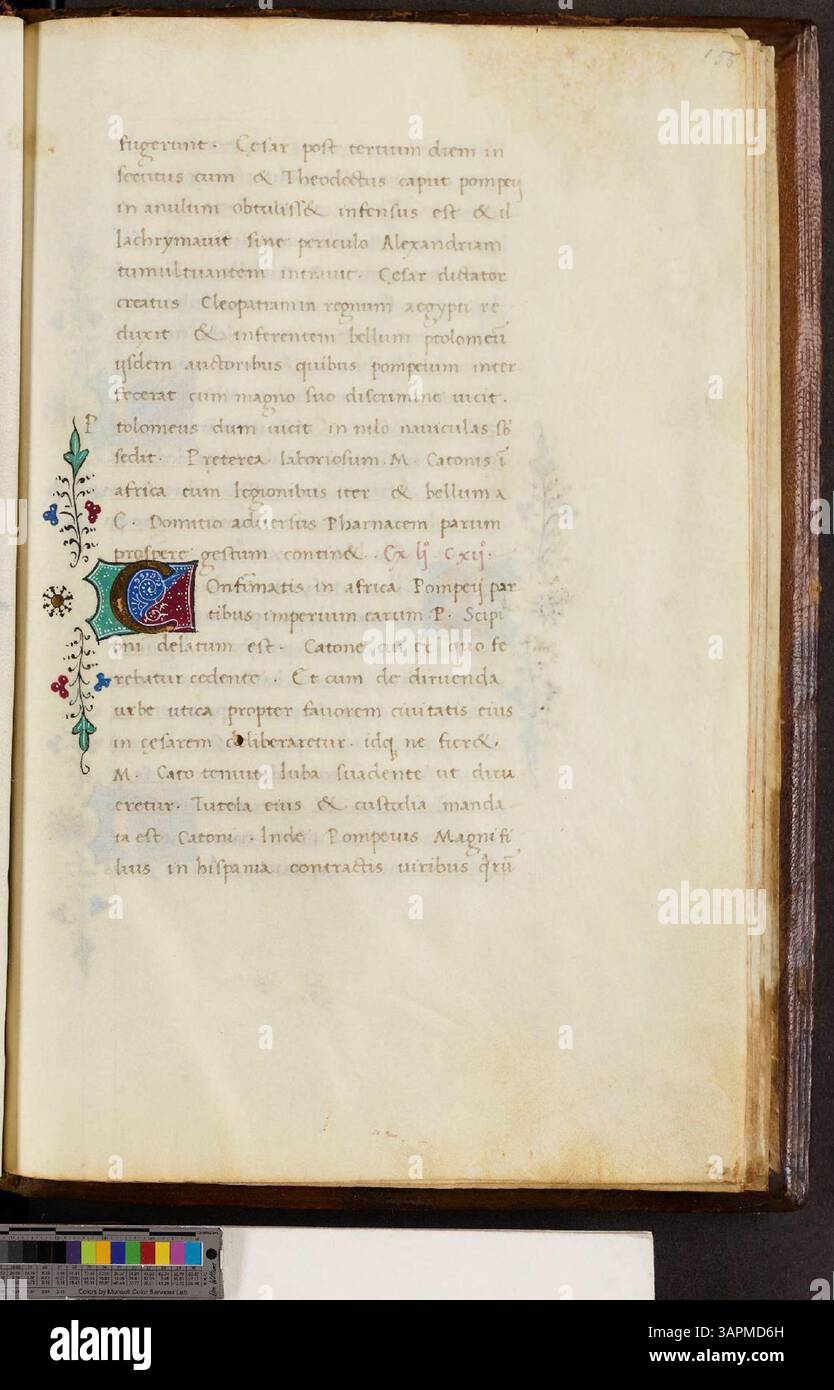 155
fugerunt. Cesar post tertium diem in
secutus cum & Theodoctus caput pompeij
in anulum obtuliss& infensus est & il
lachrymauit sine periculo Alexandriam
tumultuantem intrauit. Cesar dictator
creatus Cleopatram in regnum aegypti re
duxit & inferentem bellum ptolomeū
ijsdem auctoribus quibus pompeium inter
fecerat cum magno suo discrimine uicit.
P tolomeus dum uicit in nilo nauiculas sb̄
sedit. Preterea laboriosum M. Catonis ī
africa cum legionibus iter & bellum a
C. Domitio aduersus Pharnacem parum
prospere gestum contin&. Cx lij Cxij:
COnfirmatis in africa Pompeij par
tibus imperium earum P. Scipi
oni delatum est. Catone
rebatur cedente. Et cum de diruenda
urbe utica propter fauorem ciuitatis eius
in cesarem deliberaretur. idq ne fier&,
M. Cato tenuit Iuba suadente ut diru
eretur. Tutela eius & custodia manda
ta est Catoni. Inde Pompeius Magni fi
lius in hispania contractis uiribus
alamy
alamy
alamy
alamy
Colors by Munsell Color Services Lab
alamy
Image ID: 3APMD6H
www.alamy.com